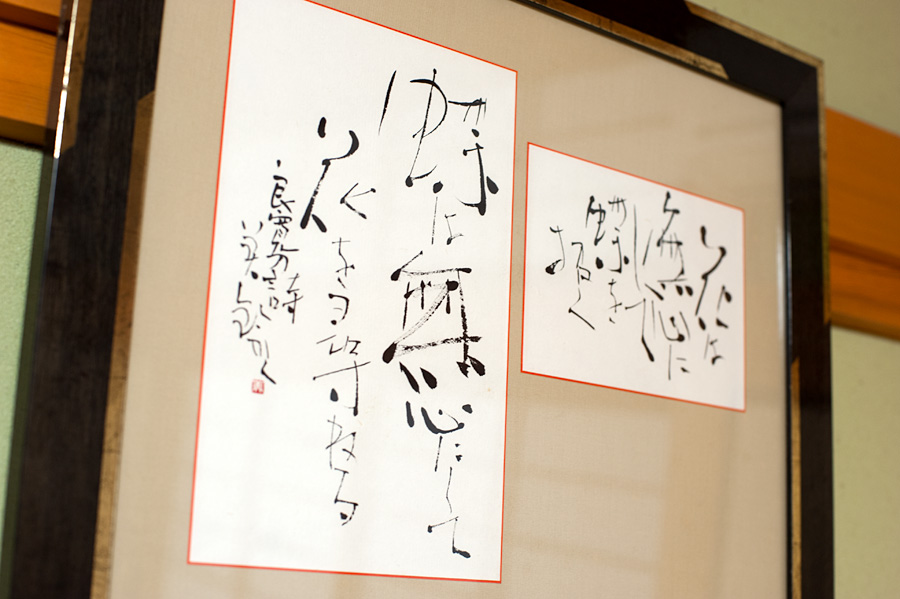 花は
無心に
して
蝶を
招く
蝶は無心にして
花を尋ねる
良寛の詩